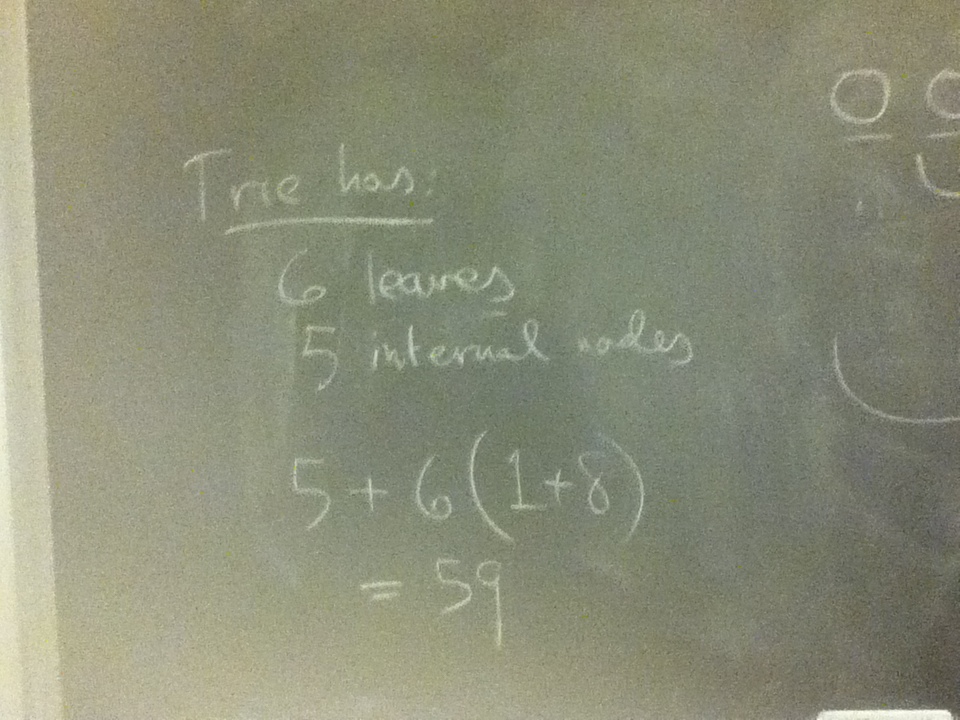 Trie has:
6 leaves
5 internal nodes
5 + 6 (1+8)
= 59
0 0